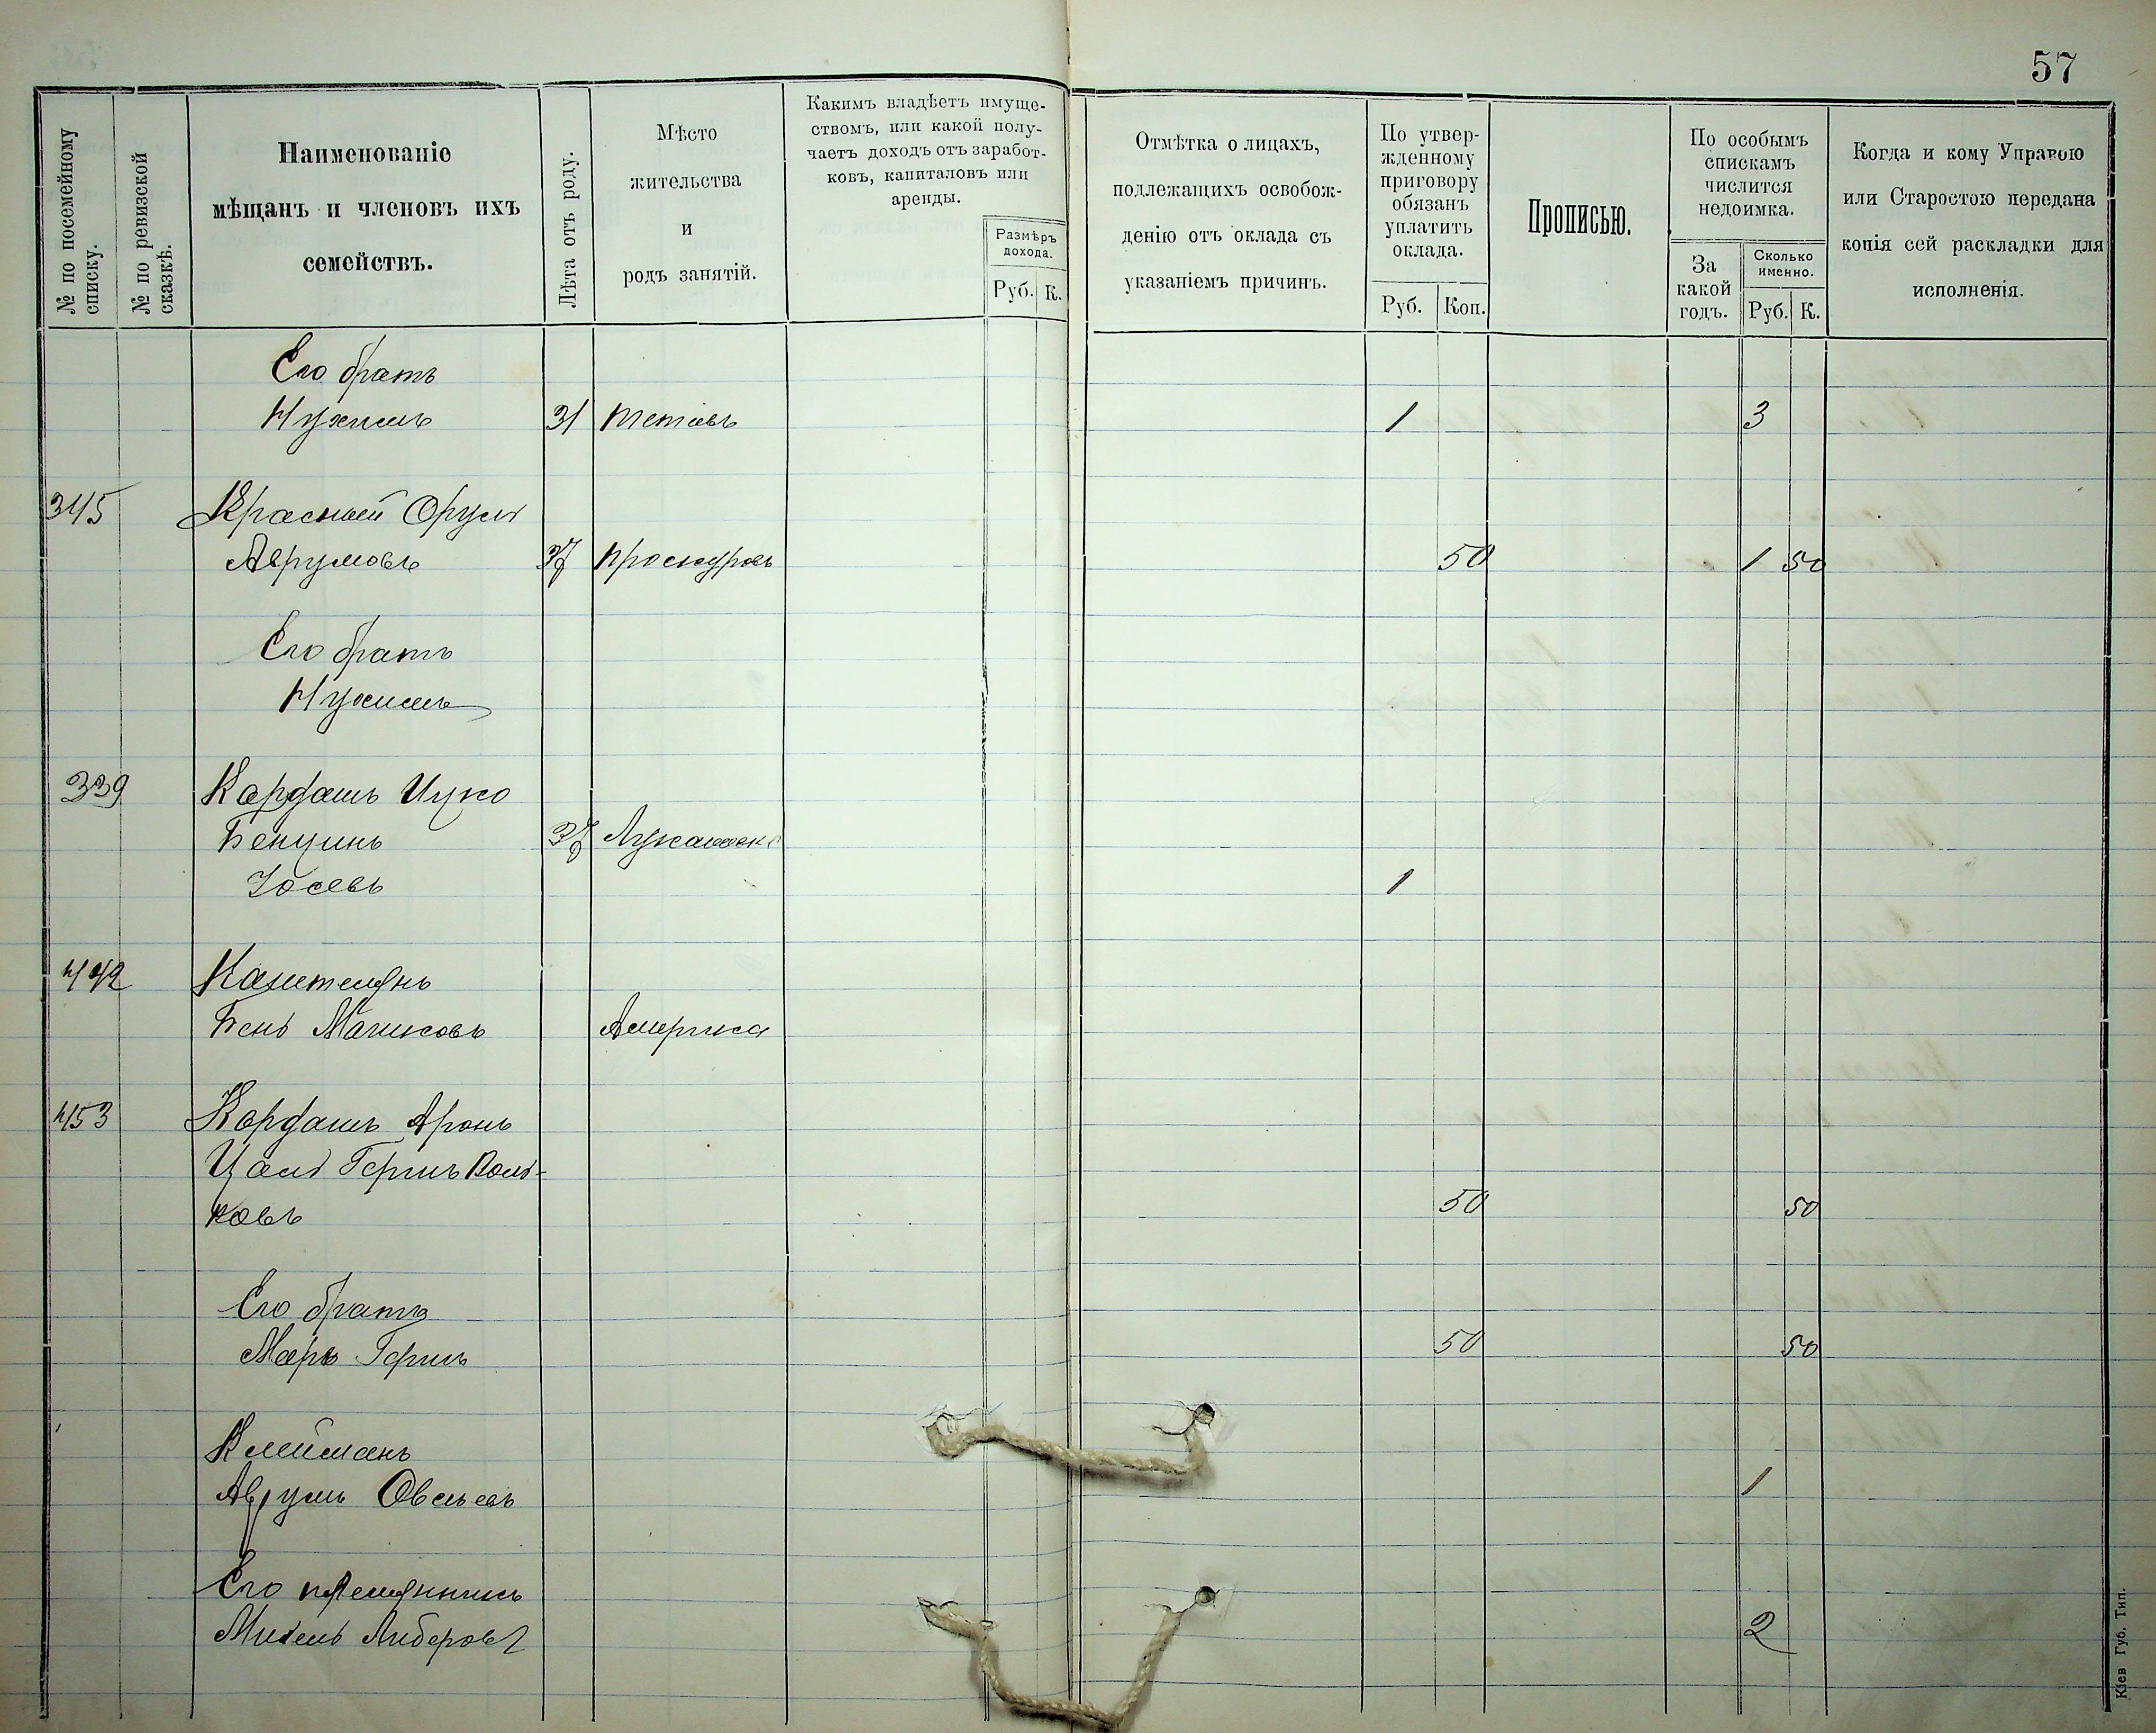 57
№ по посемейному списку.
№ по ревизской сказкѣ.
Наименованіе
мѣщанъ и членовъ ихъ
семействъ.
Лѣта отъ роду.
Мѣсто
жительства
и
родъ занятій.
Какимъ владѣетъ имуще-
ствомъ, или какой полу-
чаетъ доходъ отъ заработ-
ковъ, капиталовъ или
аренды.
Размѣръ
дохода.
Руб. К.
Отмѣтка о лицахъ,
подлежащихъ освобож-
денію отъ оклада съ
указаніемъ причинъ.
По утвер-
жденному
приговору
обязанъ
уплатить
оклада.
Руб. Коп.
Прописью.
По особымъ
спискамъ
числится
недоимка.
За
какой
годъ.
Сколько
именно.
Руб. К.
Когда и кому Управою
или Старостою передана
копія сей раскладки для
исполненія.
Его братъ
Нухимъ 31 Тетіевъ 1 3
345 Красный Сруль
Аврумовъ 37 Проскуровъ 50 1 50
Его братъ
Нухимъ
339 Кардашъ Ицко
Бенцинъ 37
Іосевъ 1
442
Бень Америка
453 Кардашъ Аронъ
Цаль Гершъ Воль-
ковъ 50 50
Его братъ
Маръ Гершъ 50 50
Клейманъ
Аврумъ Овсѣевъ 1
Его племянникъ
Михель Либеровъ 2
Кіев Губ. Тип.